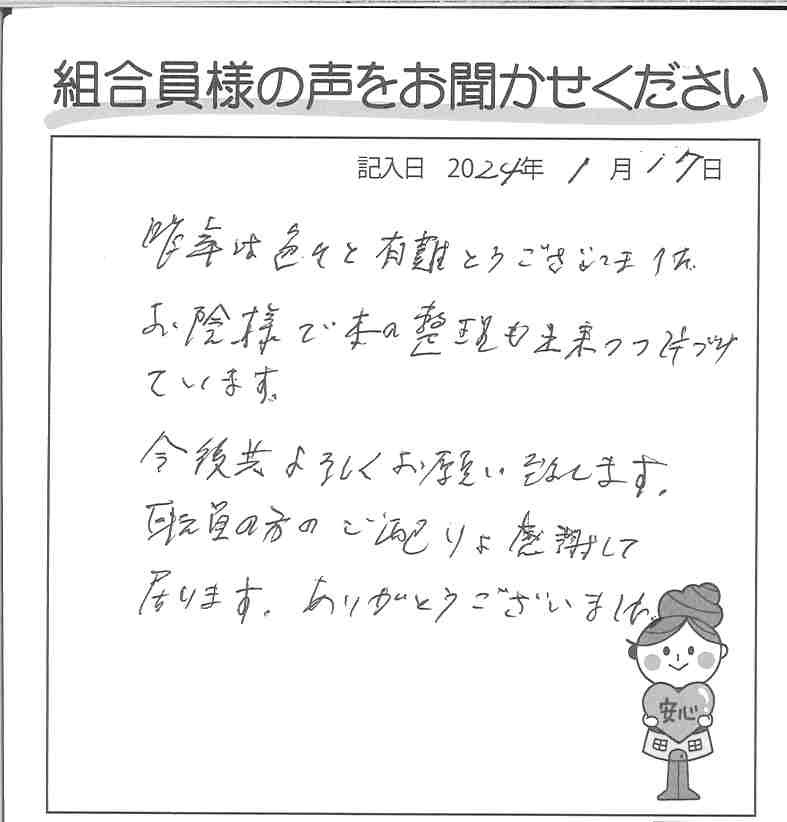 組合員様の声をお聞かせください
記入日 2024年 1月17日
昨年は色々と有難とうございました。
お陰様で家の整理も出来つつ片づけ
ています。
今後共よろしくお願い致します。
職員の方のご配りょ感謝して
居ります。ありがとうございました。
安心